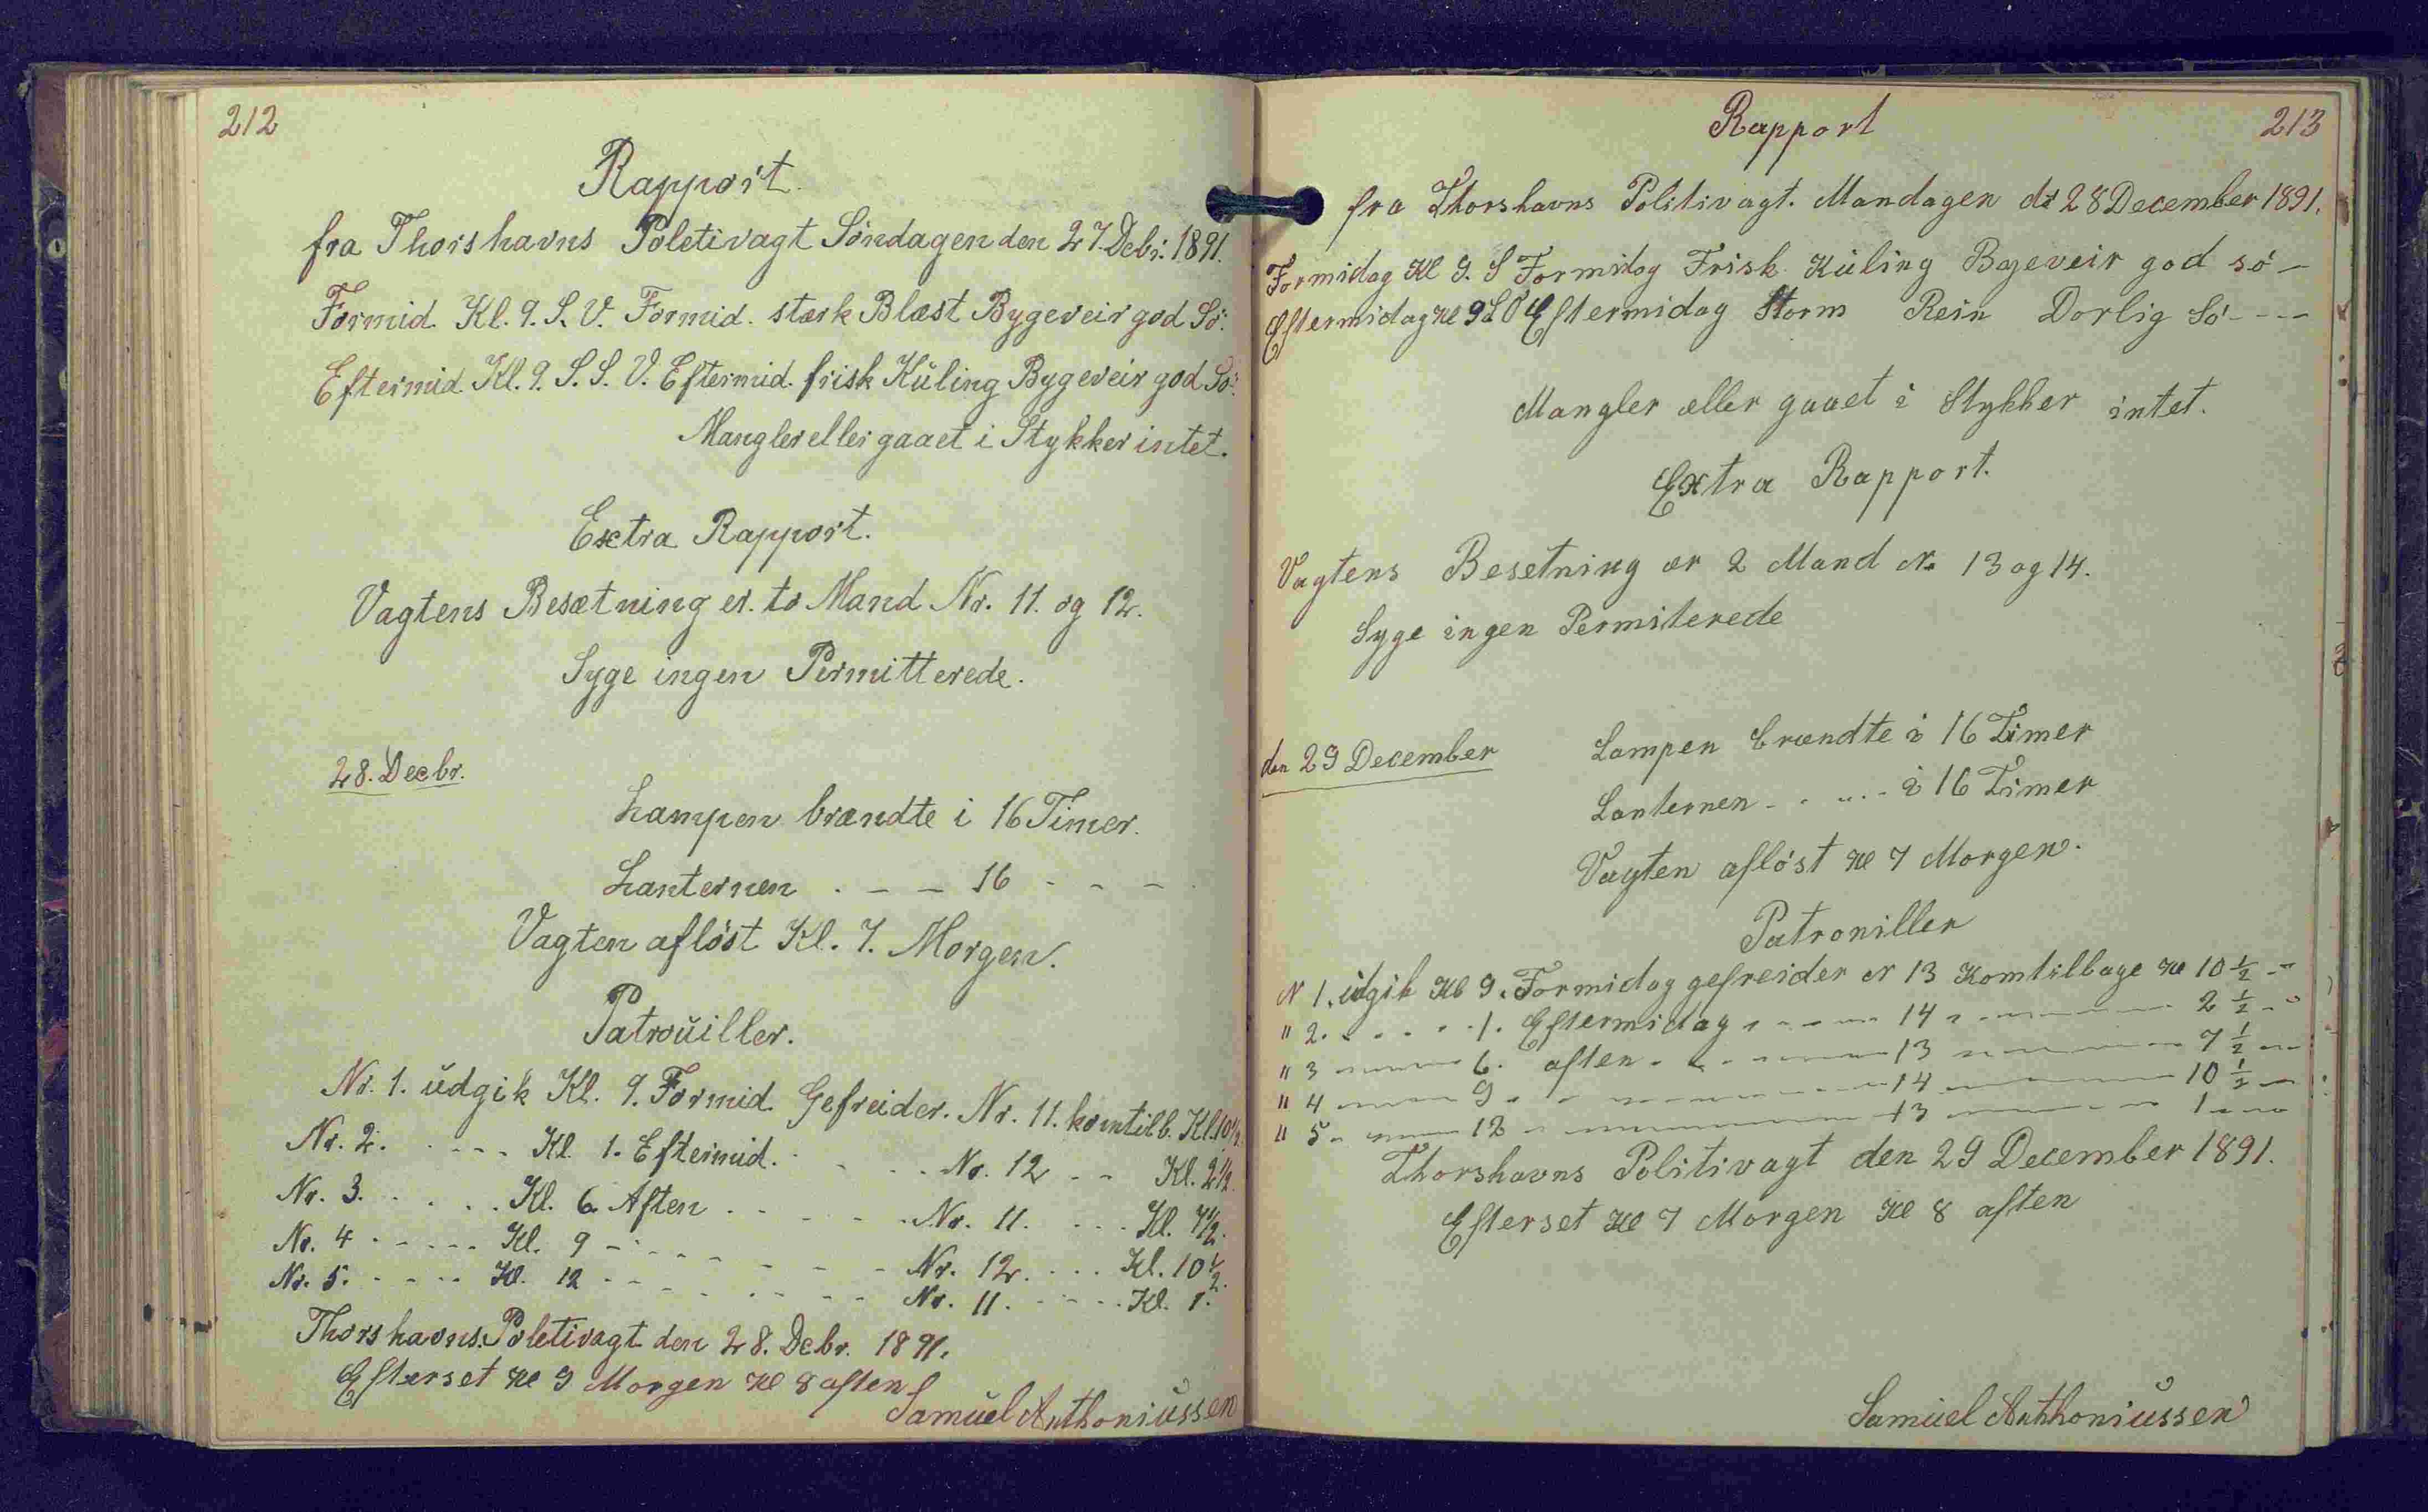 212
Rapport.
fra Thorshavns Poletivagt Söndagen den 27. Debr. 1891.
Formid. Kl. 9. S. V. Formid. stærk Blæst Bygeveir god Sö.
Eftermid. Kl. 9. S. S. V. Eftermid. frisk Kŭling Bygeveir god Sö.
Mangler eller gaaet i Stykker intet.
Extra Rapport.
Vagtens Besætning er. to Mand Nr. 11. og 12.
Syge ingen Permitterede.
28. Decbr.
Lampen brændte i 16 Timer.
Lanternen . - - 16 - - -
Vagten aflöst Kl. 7. Morgen.
Patroŭiller.
Nr. 1. ŭdgik Kl. 9. Formid. Gefreider. Nr. 11. komtilb. Kl. 10½
Nr. 2. - - - - Kl. 1. Eftermid. - - - - Nr. 12 - - Kl. 2½.
Nr. 3. - - - - Kl. 6 Aften - - - - - Nr. 11. - - - Kl. 7½.
Nr. 4 - - - - - Kl. 9 - - - - - - - Nr. 12. - - - Kl. 10½.
Nr. 5. - - - - Kl. 12 - - - - - - - Nr. 11. - - - - Kl. 1.
Thorshavns. Poletivagt den 28. Debr. 1891.
Efterset Kl 9 Morgen Kl 8 aften
Samŭel Anthoniŭssen
Rapport 213
fra Thorshavns Politivagt. Mandagen d 28 December 1891.
Formidag Kl 9. S Formidag Frisk Kŭling Bygeveir god sö -
Eftermidag Kl 9 Eftermidag Storm Rein Dorlig Sö - - -
Mangler æller gaaet i Stykker intet.
Extra Rapport.
Vagtens Besetning ær 2 Mand N. 13 og 14.
Syge ingen Permiterede
den 29 December Lampen brændte i 16 Timer
Lanternen - - „ - - i 16 Timer
Vagten aflöst Kl 7 Morgen.
Patroniller
N 1. ŭdgik Kl 9. Formidag gefreider N 13 Komtilbage Kl 10 ½ - -
" 2. - - - - 1. Eftermidag - - - - 14 - - - - 2 ½ - -
" 3 - - - - 6. aften - - - - 13 - - - - 7 ½ - -
" 4 - - - - 9 - - - - - - 14 - - - - 10 ½ - -
" 5 - - - - 12 - - - - - - 13 - - - - 1 - - -
Thorshavns Politivagt den 29 December 1891.
Efterset Kl 7 Morgen Kl 8 aften
Samŭel Anthoniŭssen